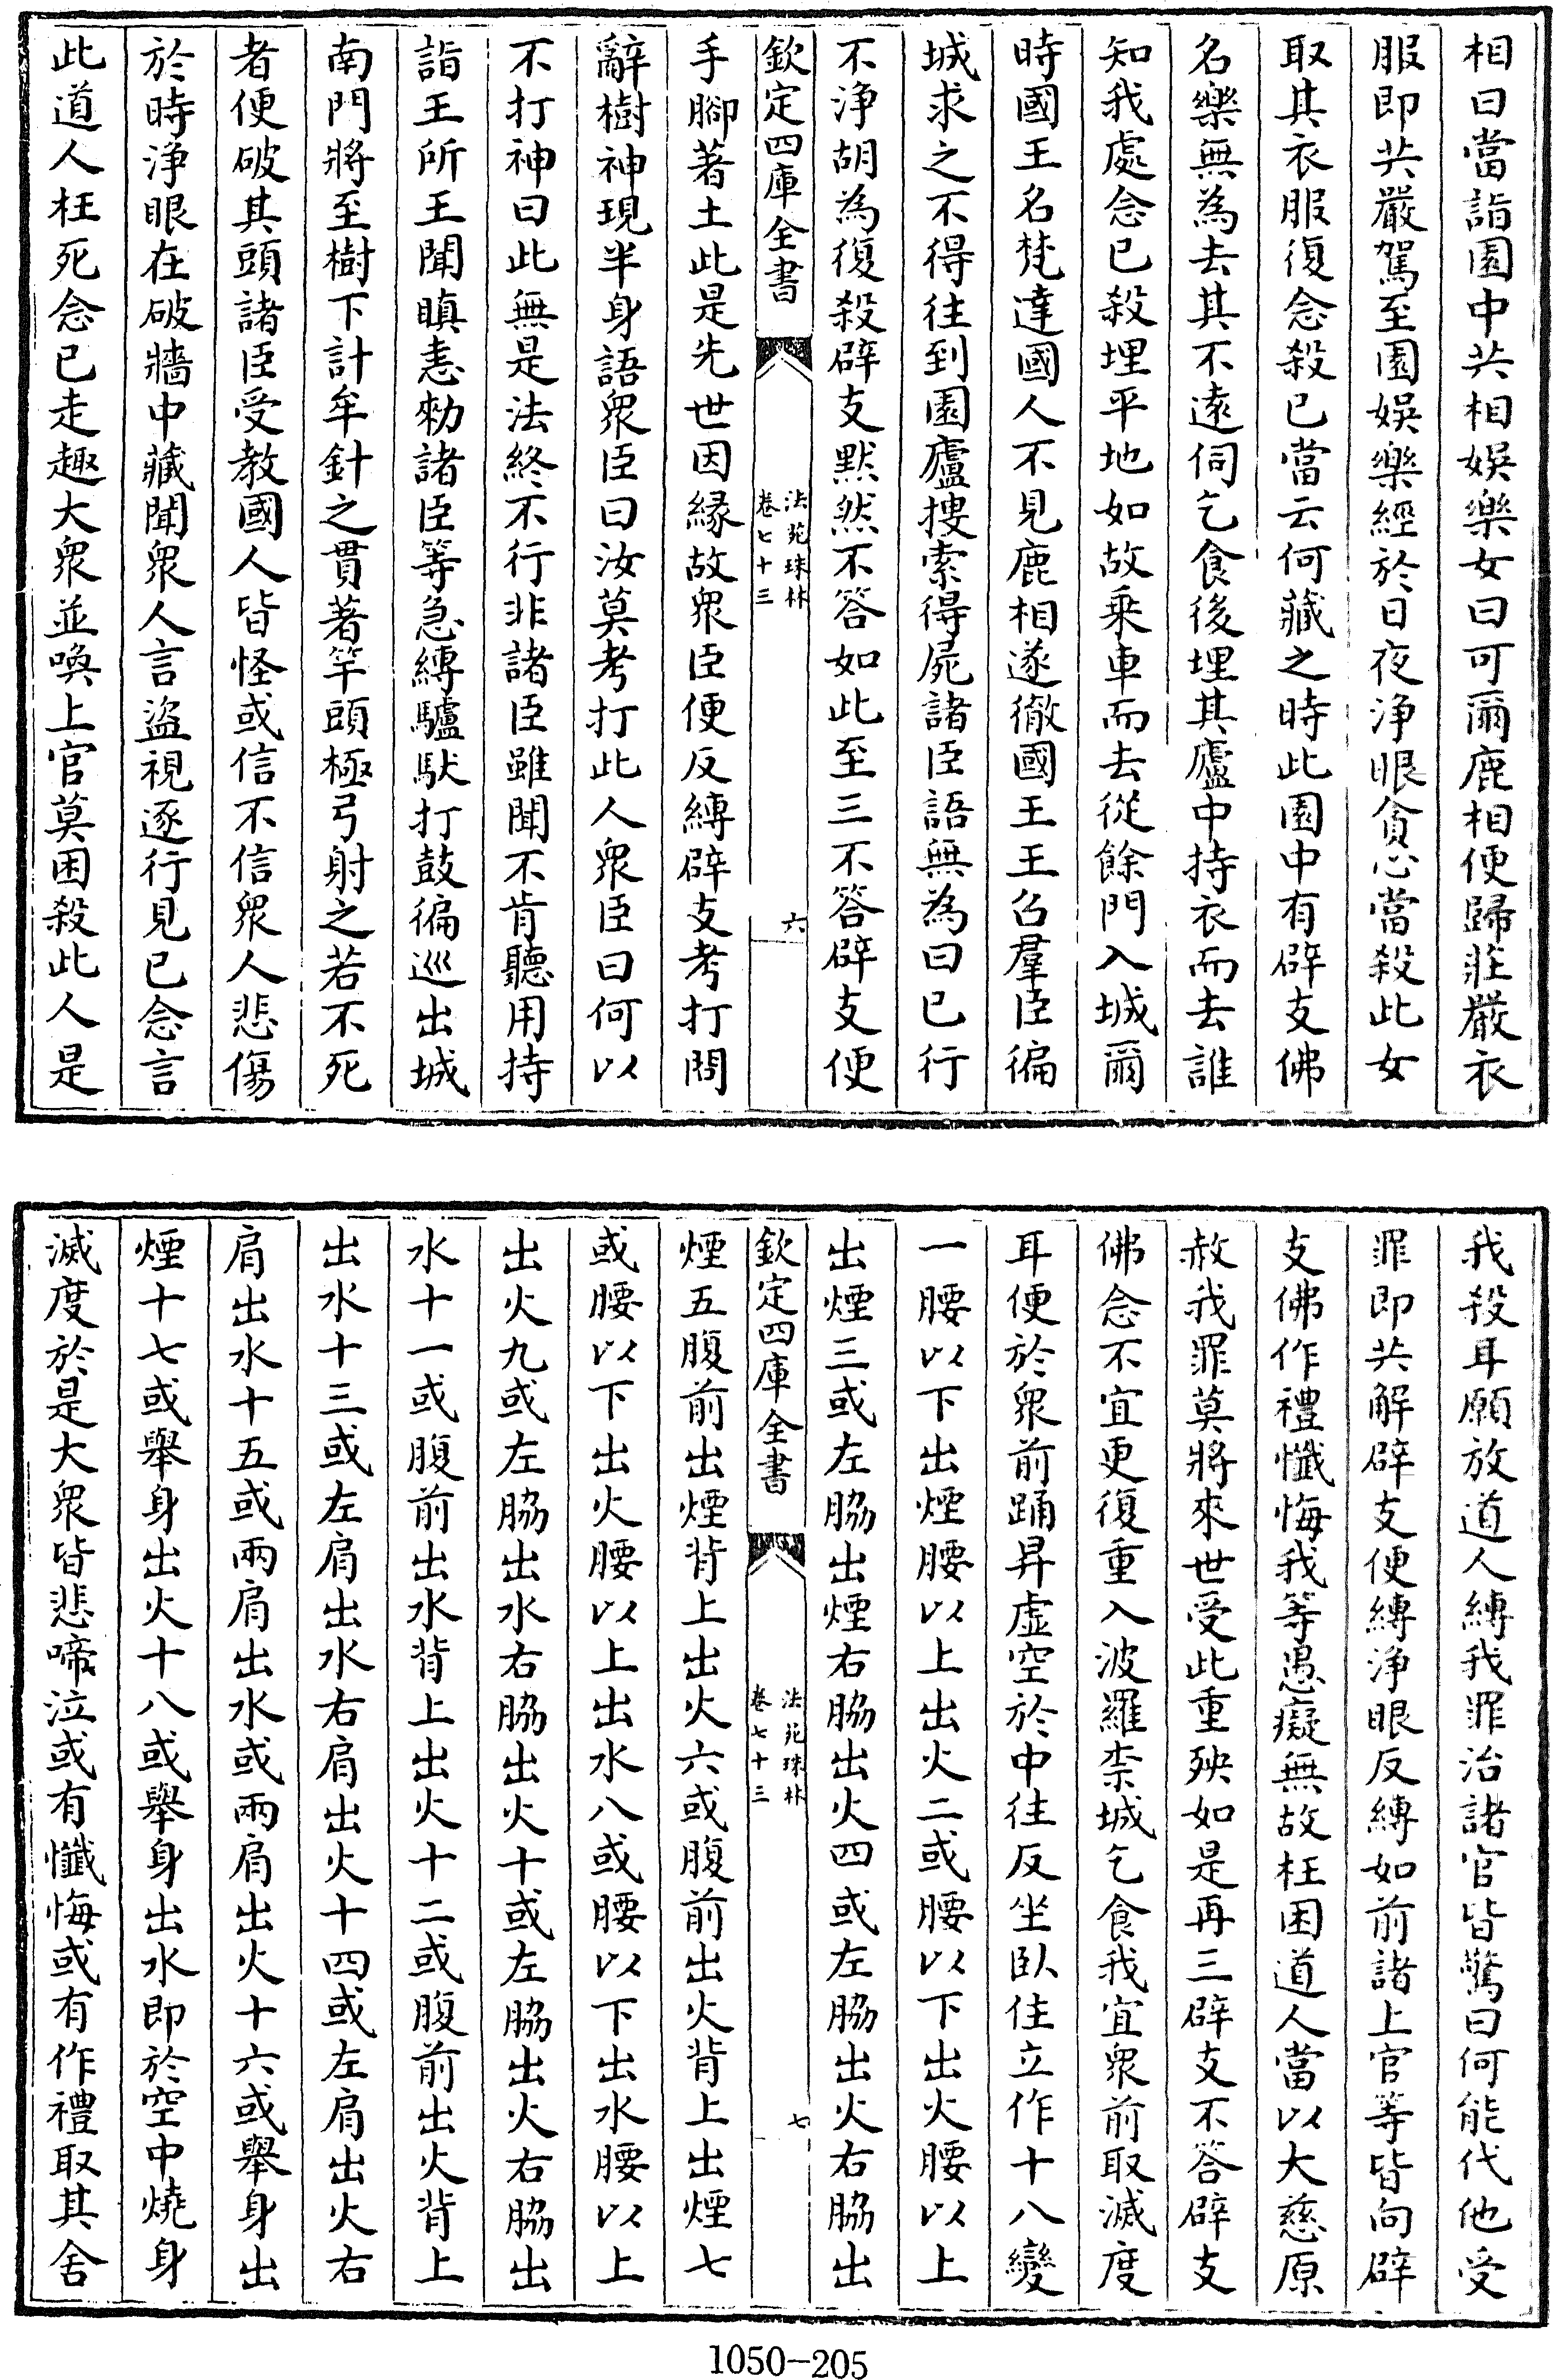 相曰當詣園中共相娛樂女曰可爾鹿相便歸莊嚴衣
服即共嚴駕至園娛樂經於日夜淨眼貪心當殺此女
取其衣服復念殺已當云何藏之時此園中有辟支佛
名樂無為去其不遠伺乞食後埋其廬中持衣而去誰
知我處念已殺埋平地如故乘車而去從餘門入城爾
時國王名梵達國人不見鹿相遂徹國王王召羣臣徧
城求之不得往到園廬搜索得屍諸臣語無為曰已行
不淨胡為復殺辟支默然不答如此至三不答辟支便
欽定四庫全書
法苑珠林
卷七十三
六
手腳著土此是先世因緣故衆臣便反縛辟支考打問
辭樹神現半身語衆臣曰汝莫考打此人衆臣曰何以
不打神曰此無是法終不行非諸臣雖聞不肯聽用持
詣王所王聞瞋恚勑諸臣等急縛驢馱打鼓徧巡出城
南門將至樹下計牟針之貫著竿頭極弓射之若不死
者便破其頭諸臣受教國人皆怪或信不信衆人悲傷
於時淨眼在破牆中藏聞衆人言盜視逐行見已念言
此道人枉死念已走趣大衆並喚上官莫困殺此人是
我殺耳願放道人縛我罪治諸官皆驚曰何能代他受
罪即共解辟支便縛淨眼反縛如前諸上官等皆向辟
支佛作禮懺悔我等愚癡無故枉困道人當以大慈原
赦我罪莫將來世受此重殃如是再三辟支不答辟支
佛念不宜更復重入波羅柰城乞食我宜衆前取滅度
耳便於衆前踊昇虛空於中往反坐臥住立作十八變
一腰以下出煙腰以上出火二或腰以下出火腰以上
出煙三或左脇出煙右脇出火四或左脇出火右脇出
欽定四庫全書
法苑珠林
卷七十三
七
煙五腹前出煙背上出火六或腹前出火背上出煙七
或腰以下出火腰以上出水八或腰以下出水腰以上
出火九或左脇出水右脇出火十或左脇出火右脇出
水十一或腹前出水背上出火十二或腹前出火背上
出水十三或左肩出水右肩出火十四或左肩出火右
肩出水十五或兩肩出水或兩肩出火十六或舉身出
煙十七或舉身出火十八或舉身出水即於空中燒身
滅度於是大衆皆悲啼泣或有懺悔或有作禮取其舍
1050-205